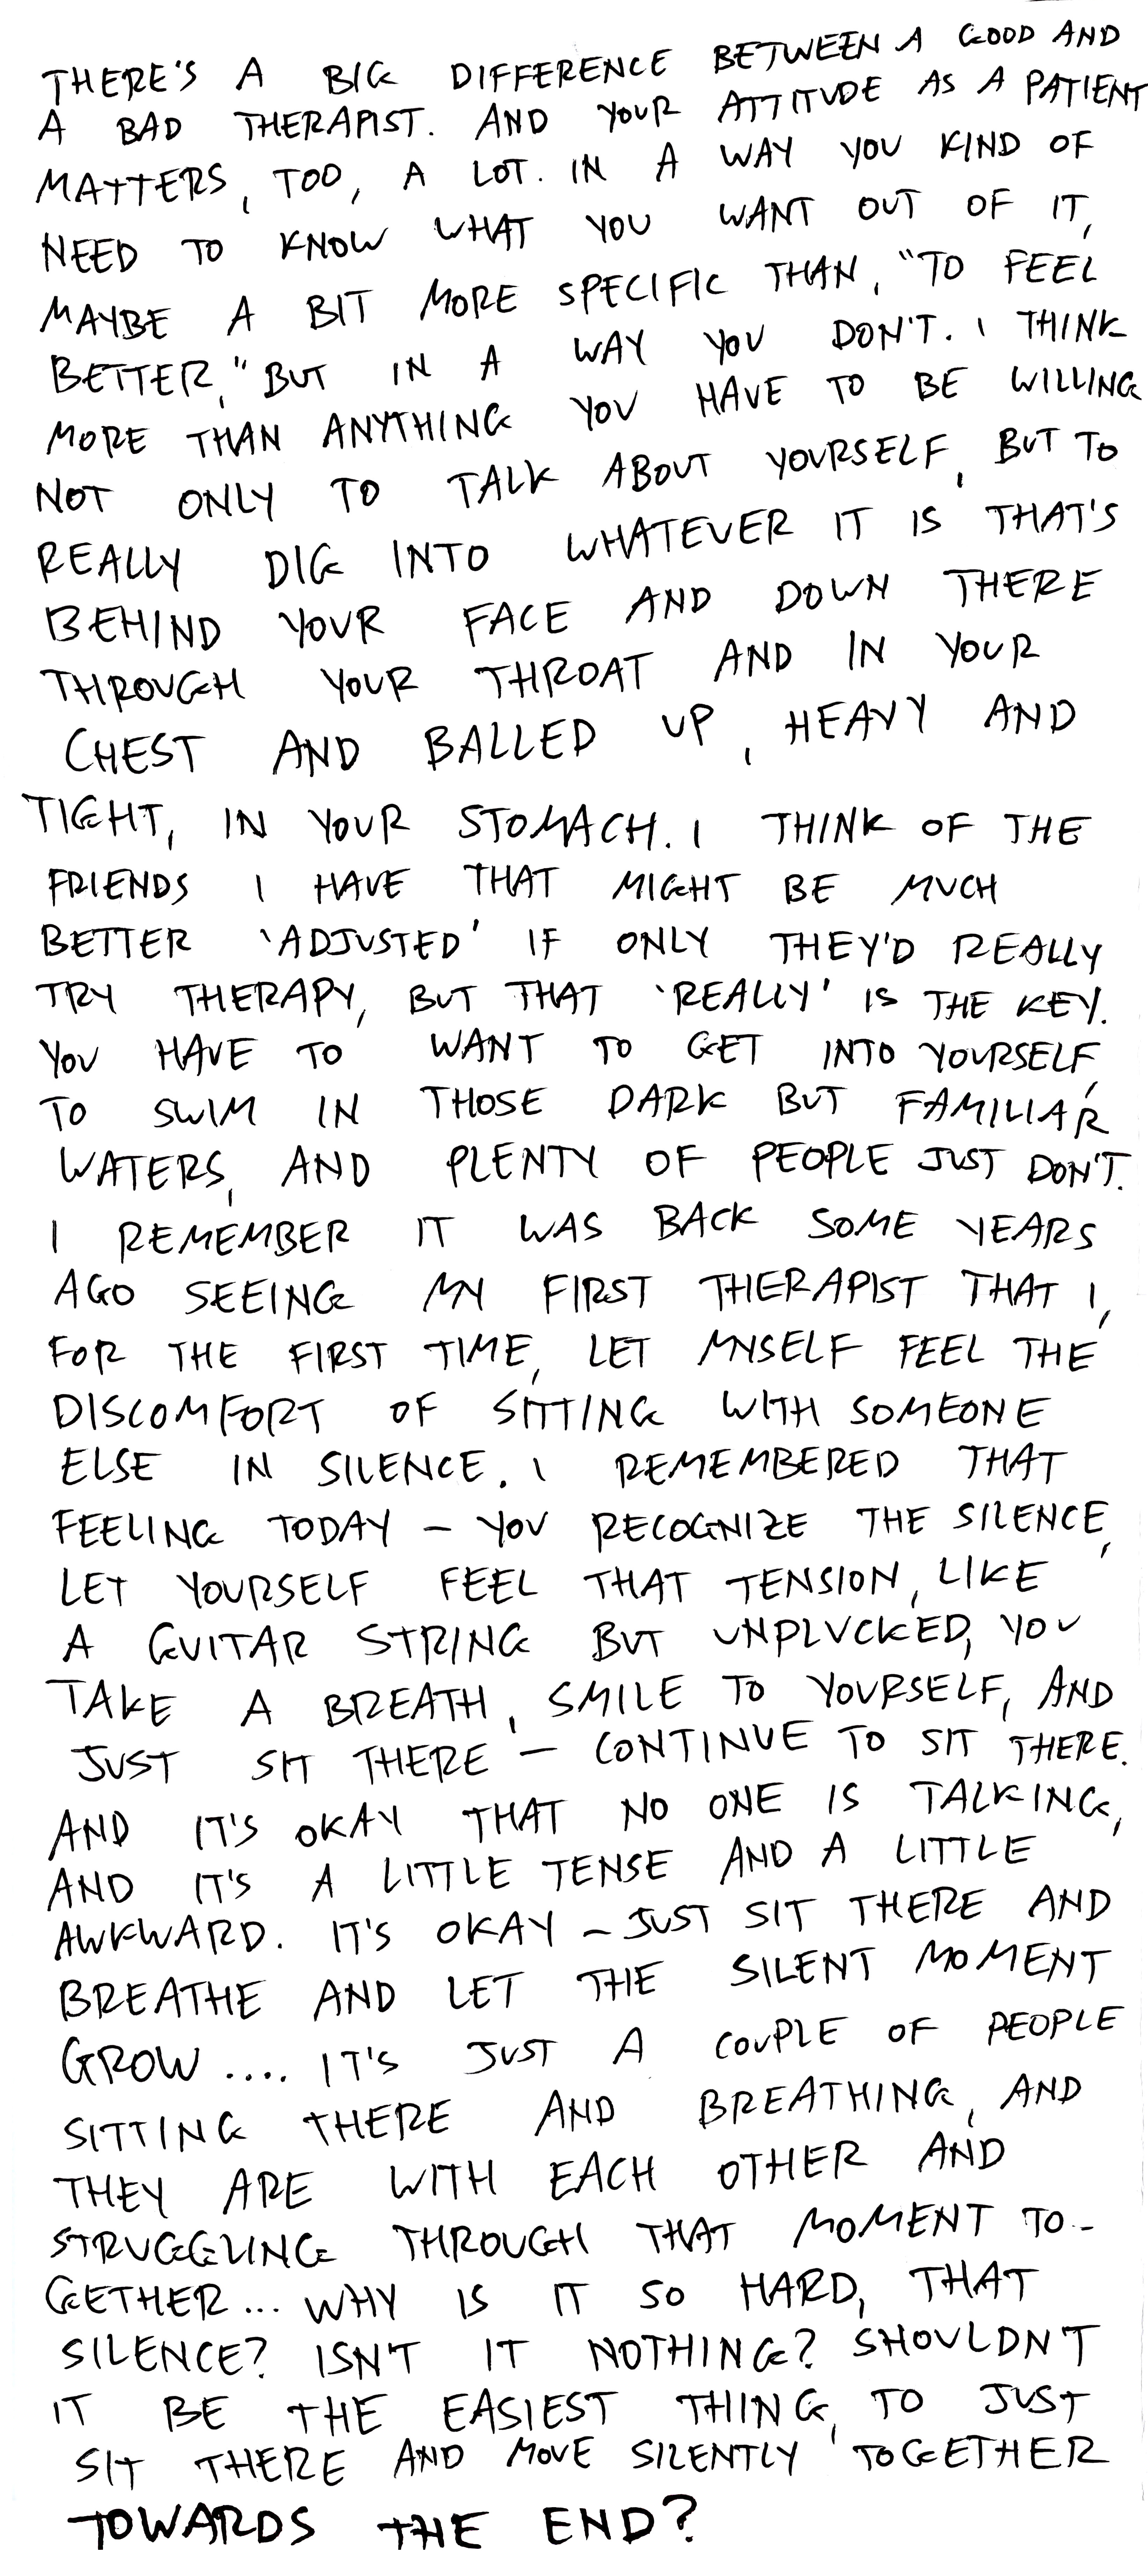 THERE'S A BIG DIFFERENCE BETWEEN A GOOD AND
A BAD THERAPIST. AND YOUR ATTITUDE AS A PATIENT
MATTERS, TOO, A LOT. IN A WAY YOU KIND OF
NEED TO KNOW WHAT YOU WANT OUT OF IT,
MAYBE A BIT MORE SPECIFIC THAN, "TO FEEL
BETTER," BUT IN A WAY YOU DON'T. I THINK
MORE THAN ANYTHING YOU HAVE TO BE WILLING
NOT ONLY TO TALK ABOUT YOURSELF, BUT TO
REALLY DIG INTO WHATEVER IT IS THAT'S
BEHIND YOUR FACE AND DOWN THERE
THROUGH YOUR THROAT AND IN YOUR
CHEST AND BALLED UP, HEAVY AND
TIGHT, IN YOUR STOMACH. I THINK OF THE
FRIENDS I HAVE THAT MIGHT BE MUCH
BETTER 'ADJUSTED' IF ONLY THEY'D REALLY
TRY THERAPY, BUT THAT 'REALLY' IS THE KEY.
YOU HAVE TO WANT TO GET INTO YOURSELF,
TO SWIM IN THOSE DARK BUT FAMILIAR
WATERS, AND PLENTY OF PEOPLE JUST DON'T.
I REMEMBER IT WAS BACK SOME YEARS
AGO SEEING MY FIRST THERAPIST THAT I,
FOR THE FIRST TIME, LET MYSELF FEEL THE
DISCOMFORT OF SITTING WITH SOMEONE
ELSE IN SILENCE. I REMEMBERED THAT
FEELING TODAY – YOU RECOGNIZE THE SILENCE,
LET YOURSELF FEEL THAT TENSION, LIKE
A GUITAR STRING BUT UNPLUCKED, YOU
TAKE A BREATH, SMILE TO YOURSELF, AND
JUST SIT THERE – CONTINUE TO SIT THERE.
AND IT'S OKAY THAT NO ONE IS TALKING,
AND IT'S A LITTLE TENSE AND A LITTLE
AWKWARD. IT'S OKAY – JUST SIT THERE AND
BREATHE AND LET THE SILENT MOMENT
GROW.... IT'S JUST A COUPLE OF PEOPLE
SITTING THERE AND BREATHING, AND
THEY ARE WITH EACH OTHER AND
STRUGGLING THROUGH THAT MOMENT TO-
GETHER... WHY IS IT SO HARD, THAT
SILENCE? ISN'T IT NOTHING? SHOULDN'T
IT BE THE EASIEST THING, TO JUST
SIT THERE AND MOVE SILENTLY TOGETHER
TOWARDS THE END?